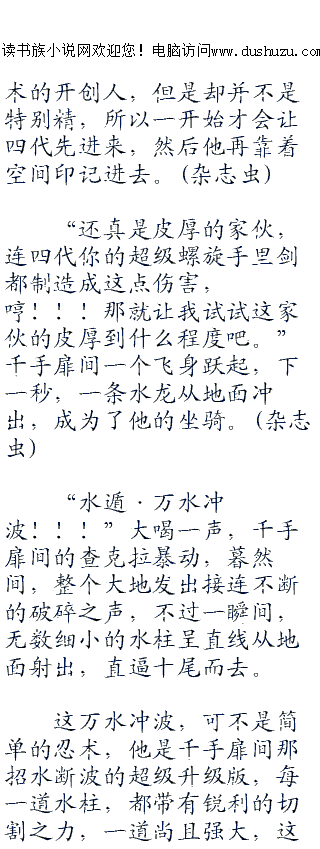 读书族小说网欢迎您！电脑访问www.dushuzu.com
术的开创人，但是却并不是
特别精，所以一开始才会让
四代先进来，然后他再靠着
空间印记进去。(杂志虫)
“还真是皮厚的家伙，
连四代你的超级螺旋手里剑
都制造成这点伤害，
哼！！！那就让我试试这家
伙的皮厚到什么程度吧。”
千手扉间一个飞身跃起，下
一秒，一条水龙从地面冲
出，成为了他的坐骑。(杂志
虫)
“水遁·万水冲
波！！！”大喝一声，千手
扉间的查克拉暴动，暮然
间，整个大地发出接连不断
的破碎之声，不过一瞬间，
无数细小的水柱呈直线从地
面射出，直逼十尾而去。
这万水冲波，可不是简
单的忍术，他是千手扉间那
招水断波的超级升级版，每
一道水柱，都带有锐利的切
割之力，一道尚且强大，这